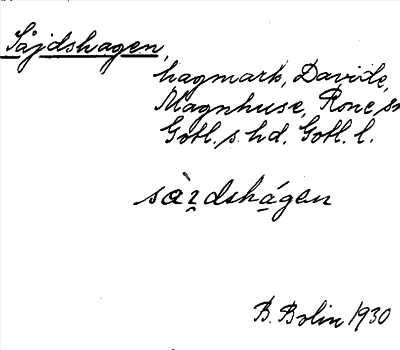 Såjdshagen,
hagmark, Davide,
Magnhuse, Rone sn
Gotl. s. hd. Gotl. l.
sàɪdshágen
B. Bolin 1930